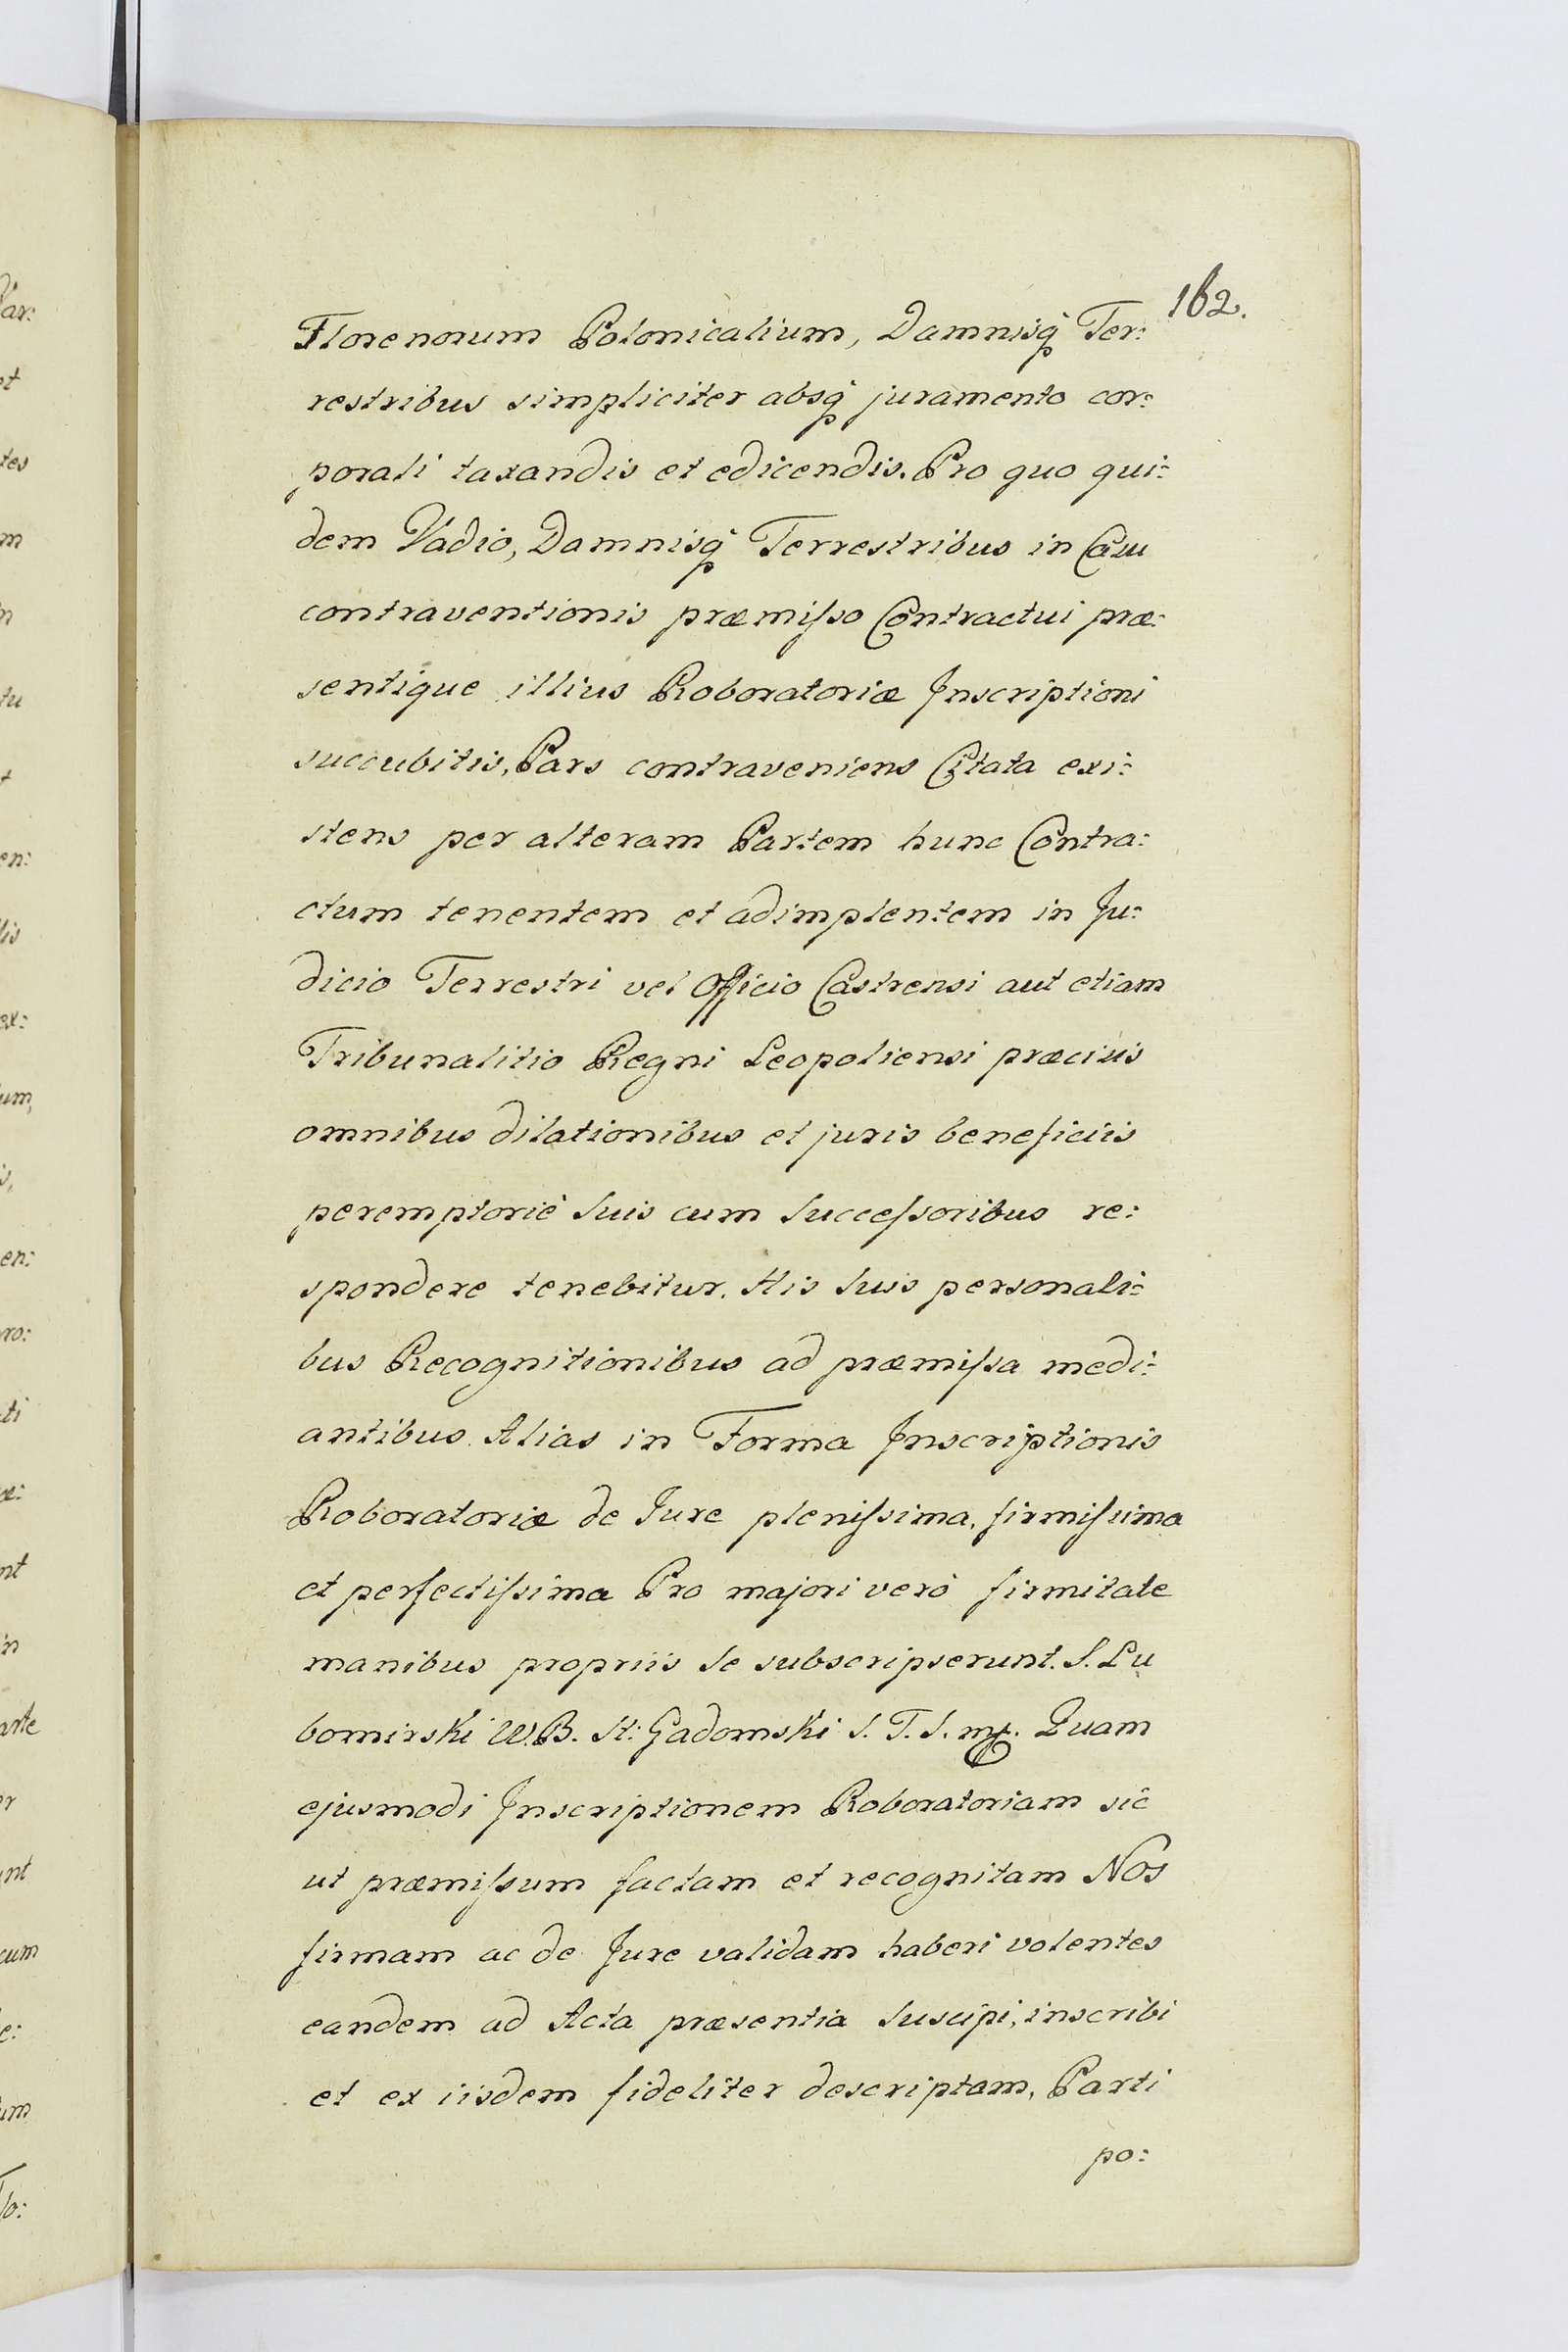 162.
Florenorum Polonicalium, Damnisq́ Ter:
restribus simpliciter absq́ juramento cor:
porali taxandis et edicendis. Pro quo qui:
dem Vadio, Damnisq́ Terrestribus in Casu
contraventionis præmiſso Contractui præ:
sentique illius Roboratoriæ Inscriptioni
succubitis, Pars contraveniens Citata exi:
stens per alteram Partem hunc Contra:
ctum tenentem et adimplentem in Ju:
dicio Terrestri vel Officio Castrensi aut etiam
Tribunalitio Regni Leopoliensi præcisis
omnibus dilationibus et juris beneficiis
peremptoriè suis cum Succeſsoribus re:
spondere tenebitur. His suis personali:
bus Recognitionibus ad præmiſsa medi:
antibus. Alias in Forma Inscriptionis
Roboratoriæ de Jure pleniſsima, firmiſsima
et perfectiſsima Pro majori verò firmitate
manibus propriis se subscripserunt. S. Lu
bomirski W.B. St: Gadomski S. T. S. mp. Quam
ejusmodi Inscriptionem Roboratoriam sic
ut præmiſsum factam et recognitam Nos
firmam ac de Jure validam haberi volentes
eandem ad Acta præsentia suscipi, inscribi
et ex iisdem fideliter descriptam, Parti
po:
ar:
et
tes
m
n
tu
t
en:
lis
ex:
um,
s,
en:
ro:
ti
æ:
nt
in
arte
er
unt
cum
e:
um
To: